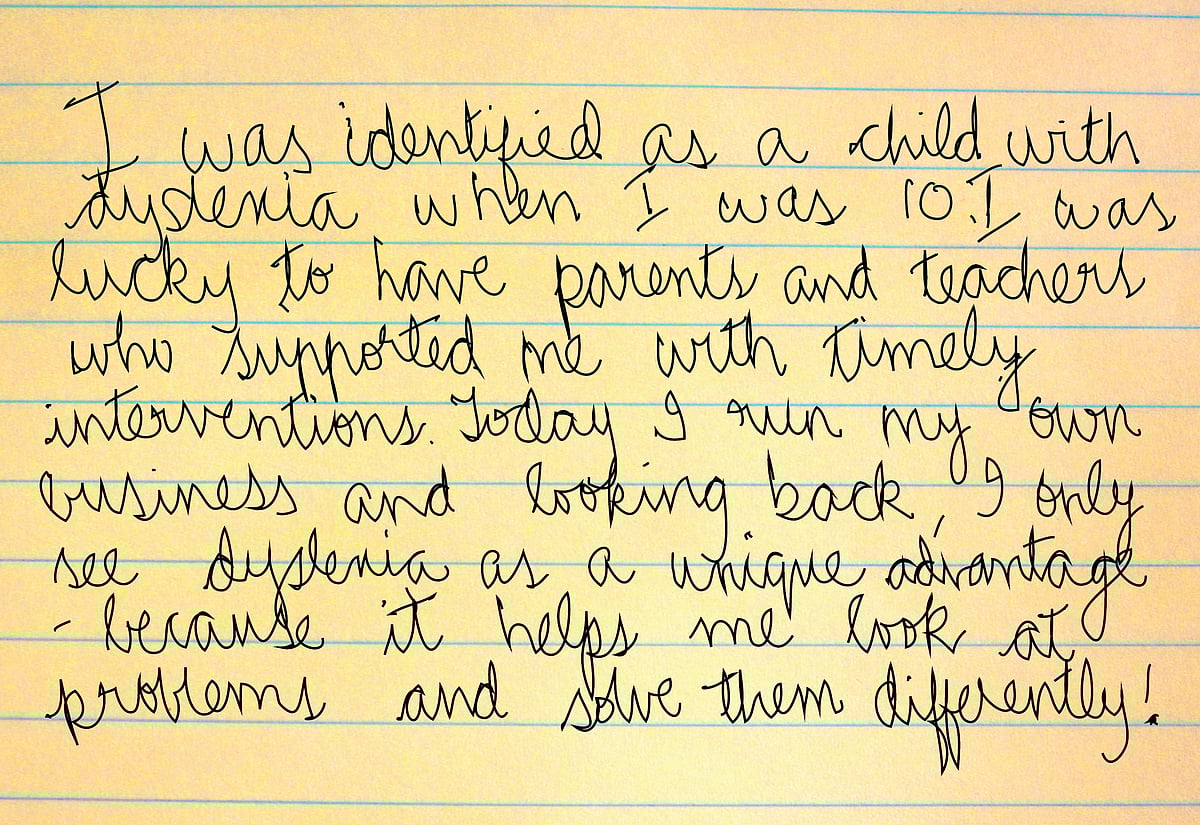 I was identified as a child with
dyslexia when I was 10. I was
lucky to have parents and teachers
who supported me with timely
interventions. Today I run my own
business and looking back, I only
see dyslexia as a unique advantage
- because it helps me look at
problems and solve them differently!